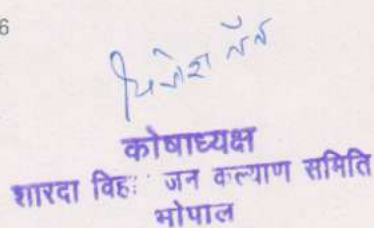 6
कोषाध्यक्ष
शारदा विहः जन कल्याण समिति
भोपाल